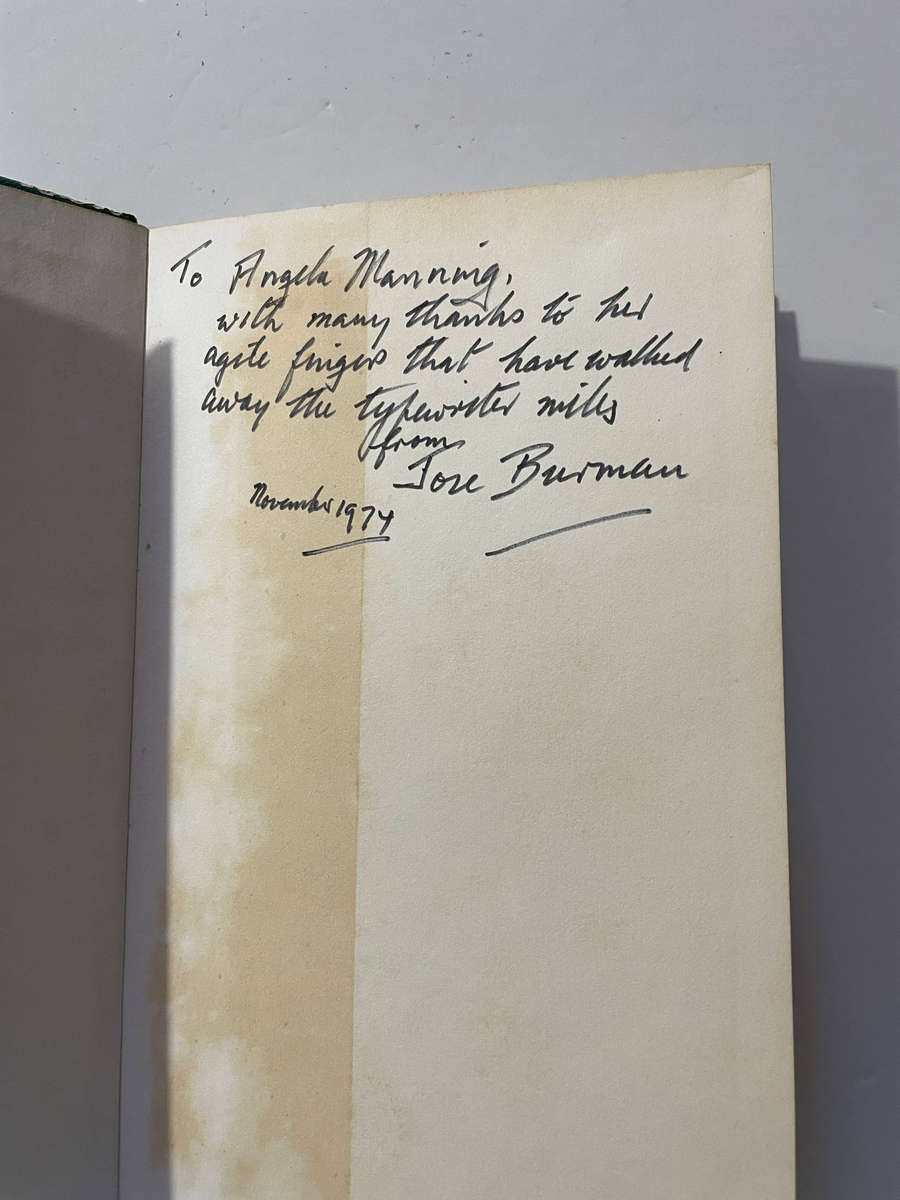 To Angela Manning,
with many thanks to her
agile fingers that have walked
away the typewriter miles
from
Jose Burman
November 1974